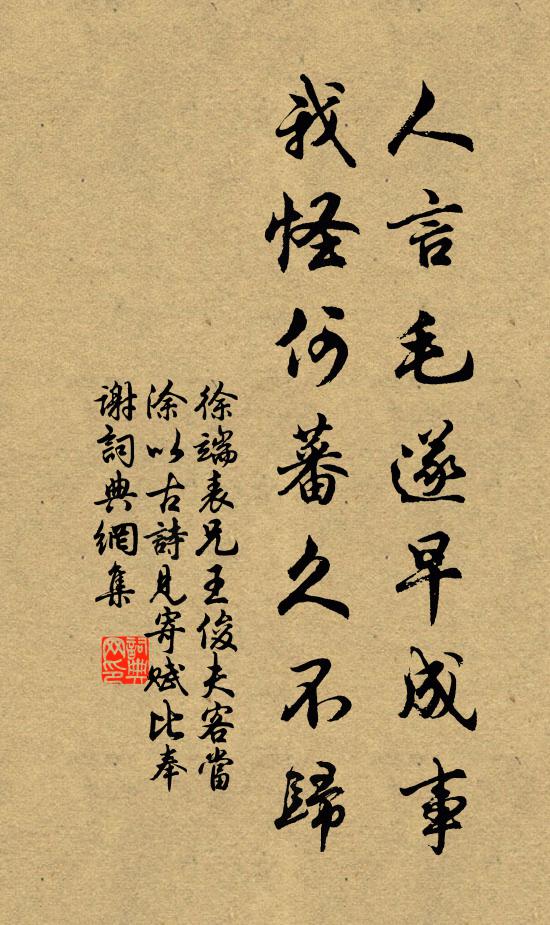 人言毛遂早成事
我怪何蕃久不歸
徐端表兄王俊夫客當
涂以古詩見寄賦比奉
謝詞典網集
詞典
网印